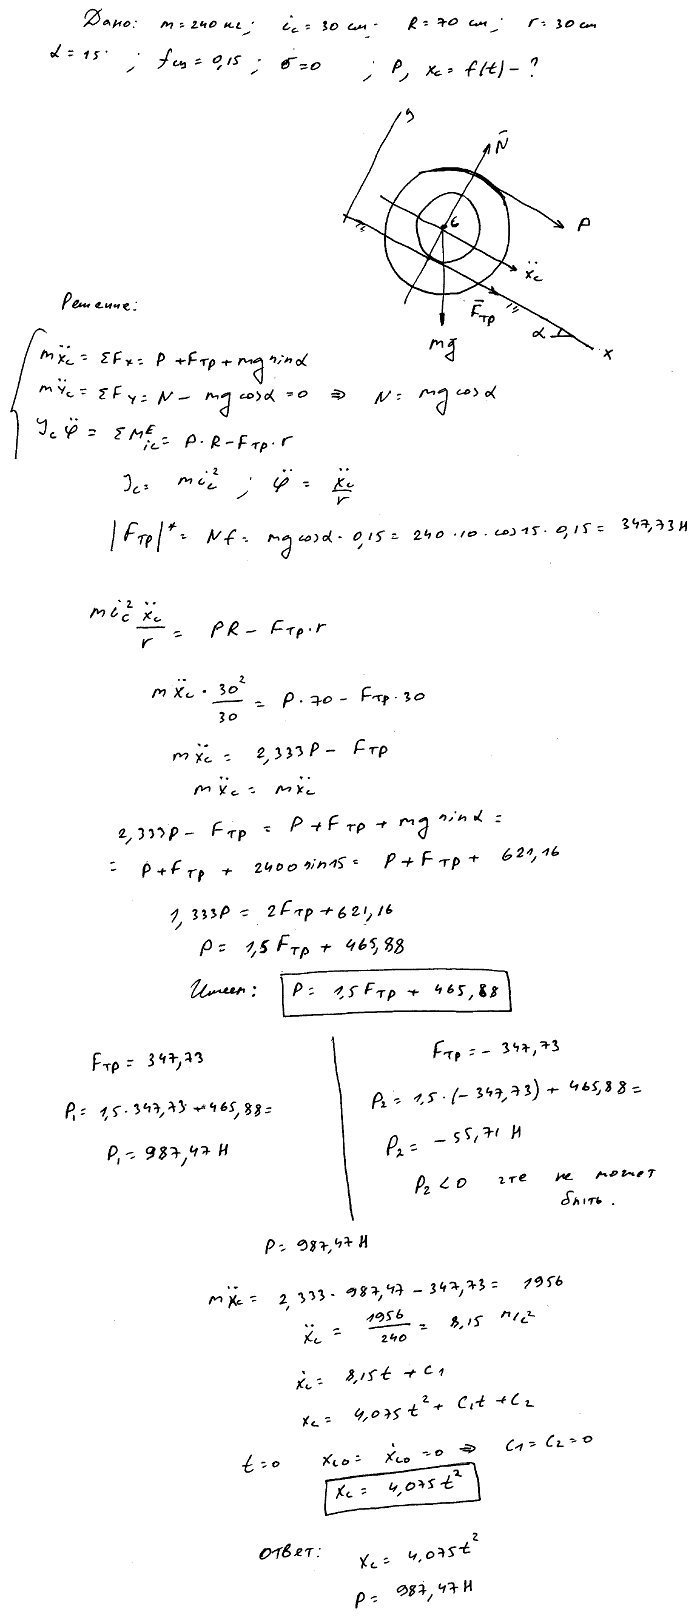 Дано: m = 240 кг; i_c = 30 cm. R = 70 cm; r = 30 cm
α = 15°; f_сц = 0,15; δ = 0 ; P, x_c = f(t) - ?
y
N̄
P
C
ẍ_c
F̄_тр
α
x
mḡ
Решение:
mẍ_c = ΣF_x = P + F_тр + mg sinα
mÿ_c = ΣF_y = N - mg cosα = 0 ⇒ N = mg cosα
J_c φ̈ = ΣM^E_ic = P·R - F_тр·r
J_c = m i_c² ; φ̈ = ẍ_c/r
|F_тр|* = Nf = mg cosα · 0,15 = 240 · 10 · cos15 · 0,15 = 347,73 Н
m i_c² ẍ_c/r = PR - F_тр·r
mẍ_c · 30²/30 = P·70 - F_тр·30
mẍ_c = 2,333P - F_тр
mẍ_c = mẍ_c
2,333P - F_тр = P + F_тр + mg sinα =
= P + F_тр + 2400 sin15 = P + F_тр + 621,16
1,333P = 2F_тр + 621,16
P = 1,5F_тр + 465,88
Имеем: P = 1,5F_тр + 465,88
F_тр = 347,73
P₁ = 1,5·347,73 + 465,88 =
P₁ = 987,47 Н
F_тр = - 347,73
P₂ = 1,5·(-347,73) + 465,88 =
P₂ = - 55,71 Н
P₂ < 0 не может
быть.
P = 987,47 Н
mẍ_c = 2,333·987,47 - 347,73 = 1956
ẍ_c = 1956/240 = 8,15 м/с²
ẋ_c = 8,15t + C₁
x_c = 4,075t² + C₁t + C₂
t = 0 x_c0 = ẋ_c0 = 0 ⇒ C₁ = C₂ = 0
x_c = 4,075t²
ответ: x_c = 4,075t²
P = 987,47 Н